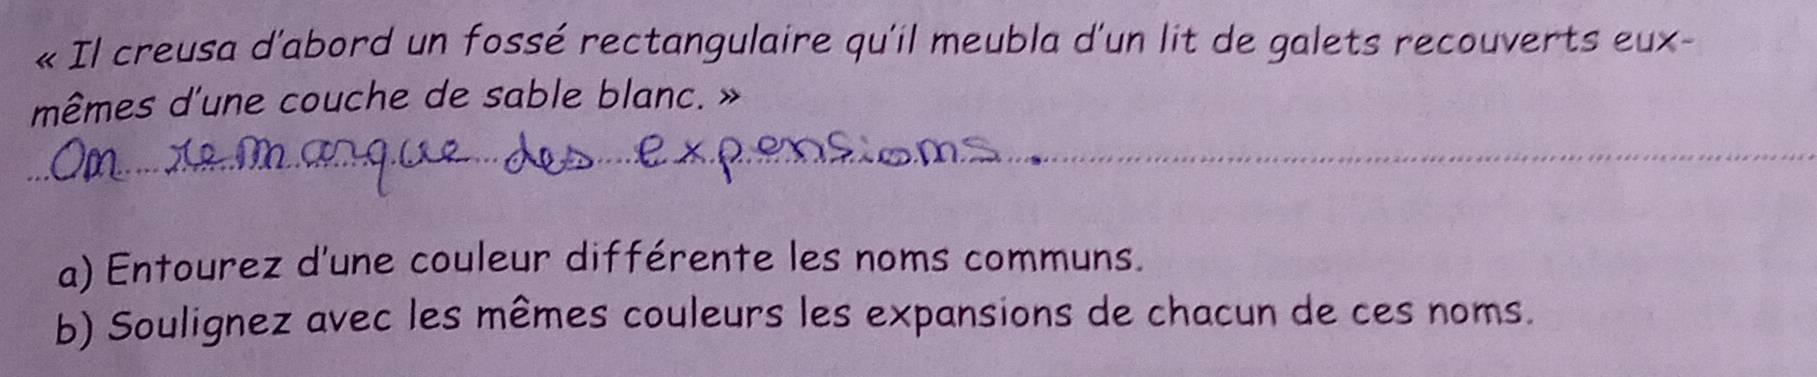 « Il creusa d'abord un fossé rectangulaire qu'il meubla d'un lit de galets recouverts eux-
mêmes d'une couche de sable blanc. »
On remarque des expensions.
a) Entourez d'une couleur différente les noms communs.
b) Soulignez avec les mêmes couleurs les expansions de chacun de ces noms.